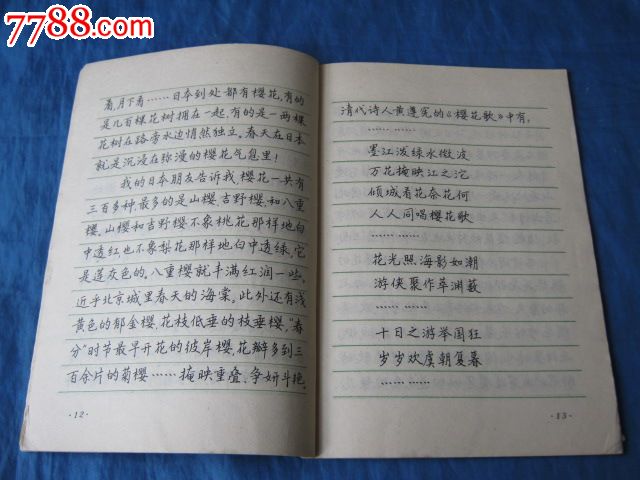 7788.com
看,月下看……日本到处都有樱花,有的
是几百棵花树拥在一起,有的是一两棵
花树在路旁水边悄然独立。春天在日本
就是沉浸在弥漫的樱花气息里!
我的日本朋友告诉我,樱花一共有
三百多种,最多的是山樱、吉野樱、和八重
樱。山樱和吉野樱不象桃花那样地白
中透红,也不象梨花那样地白中透绿,它
是莲灰色的,八重樱就丰满红润一些,
近乎北京城里春天的海棠。此外还有浅
黄色的郁金樱,花枝低垂的枝垂樱,“春
分”时节最早开花的彼岸樱,花瓣多到三
百余片的菊樱……掩映重叠、争妍斗艳,
·12·
清代诗人黄遵宪的《樱花歌》中有,
……  ……
墨江泼绿水微波
万花掩映江之沱
倾城看花奈花何
人人同唱樱花歌
……  ……
花光照海影如潮
游侠聚作萃渊薮
……  ……
十日之游举国狂
岁岁欢虞朝复暮
……  ……
·13·